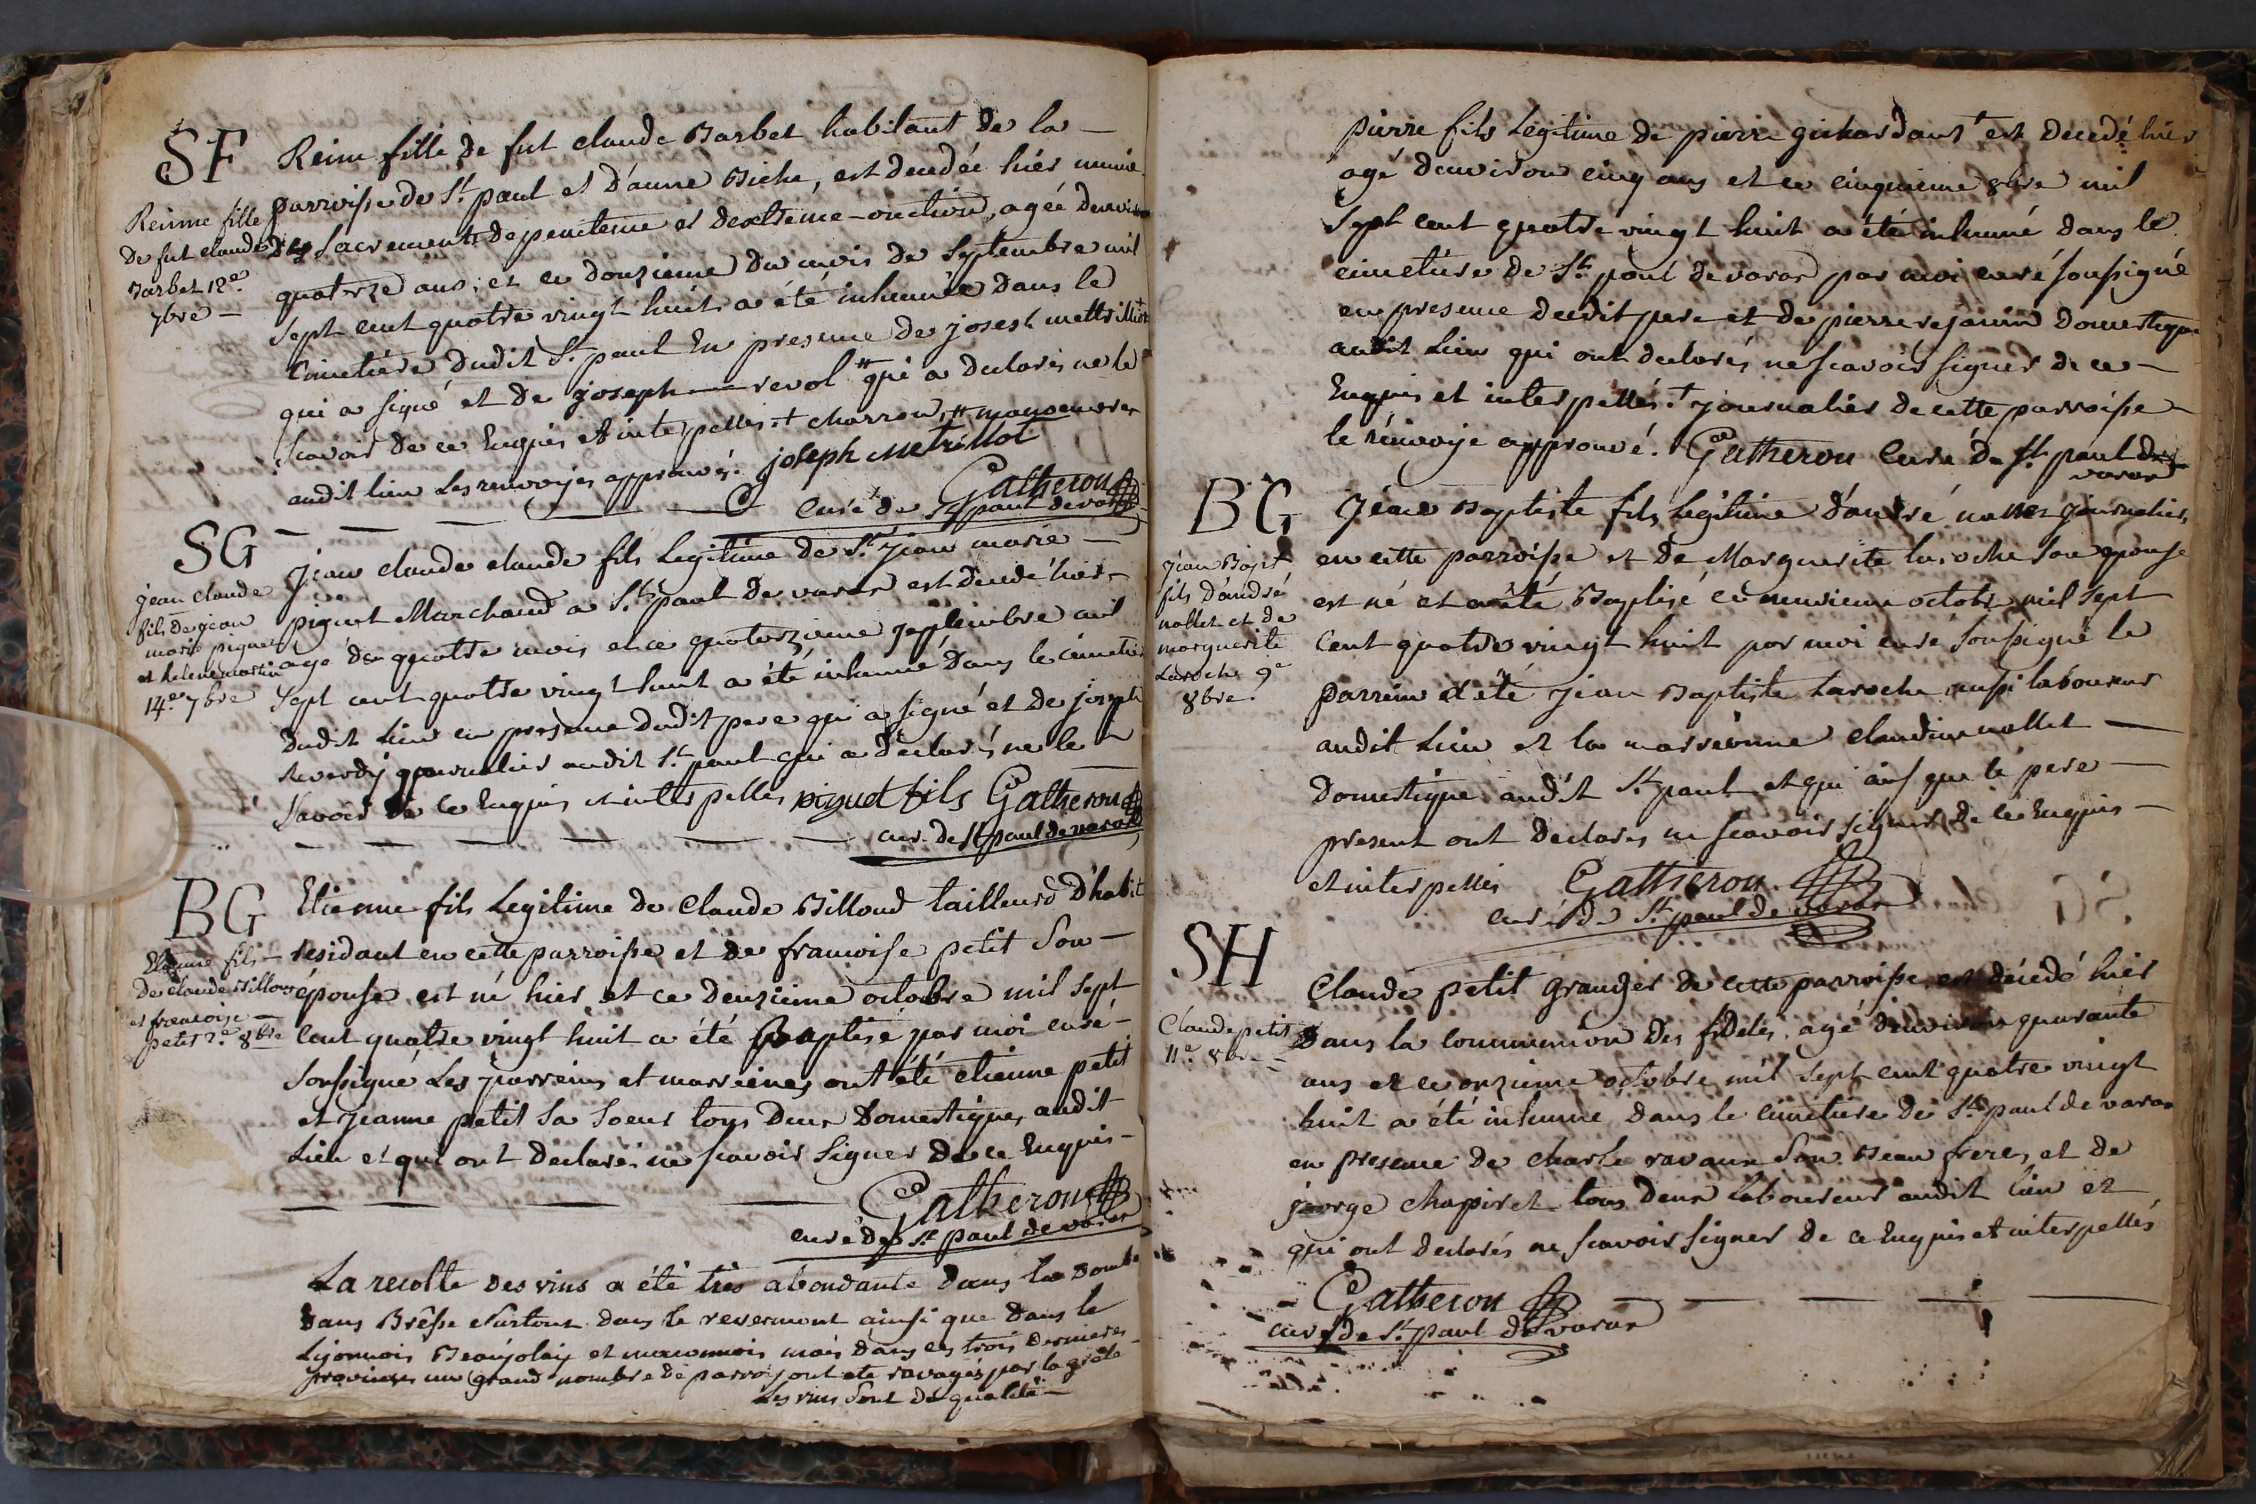 SF
Reinne fille
de fut claude
Barbet 12e
7bre —
Reine fille de fut claude Barbet habitant de la —
parroisse de St. paul et D'anne Biche, est decedée hier munie
des sacrements de penitence et dextreme-onction, agée denviron
quatorze ans, et ce douzieme du mois de septembre mil
sept cent quatre vingt huit a été inhumée dans le
cimetiére dudit St. paul En presence de joseph
qui a signé et de joseph — revol # qui a declarés ne le
scavoir de ce Enquis et interpellés. + charron, # manoeuvre
audit lieu les renvoyés approuvés. joseph Metrillot
Gatheron
Curé de St paul de varax
SG
jean claude
fils de jean
marie piquet
et helene martin
14e 7bre
jean claude claude fils Legitime de Sr. jean marie —
piquet Marchand a St. paul de varax est decedé hier —
agé de quatre mois et ce quatorzieme septembre mil
sept cent quatre vingt huit a été inhumé dans le cimetiere
dudit Lieu en presence dudit pere qui a signé et de joseph
Reverdÿ journalier audit St. paul qui a declarés ne le —
savoir de ce Enquis et interpellés piquet fils Gatheron
cur. de St paul de varax
BG
Etienne fils —
de claude Billoud
et francoise —
petit 2e 8bre
Etienne fils Legitime de Claude Billoud tailleurs D'habit
residant en cette parroisse et de francoise petit Son —
épouse est né hier et ce deuzieme octobre mil sept
cent quatre vingt huit a été Baptisé par moi curé —
Soussigné Les parreins et marreines ont été etienne petit
et jeanne petit sa soeur tous deux Domestiques audit
Lieu et qui ont declarés ne scavoir signer de ce Enquis —
Gatheron
curé de St. paul de varax
La recolte des vins a été tres abondante dans la Dombe
dans Brêsse surtout dans le revermont ainsi que dans le
Lyonnois Beaujolais et maconnois mais dans ces trois dernieres
provinces un grand nombre de parrois. ont eté ravagés par la grele
Les vins sont de qualité —
pierre fils Legitime de pierre est decedé hier
agé denviron cinq ans et ce cinquieme 8bre mil
sept cent quatre vingt huit a été inhumé dans le
cimetiére de St. paul de varax par moi curé soussigné
en presence dudit pere et de pierre rejanin Domestique
audit Lieu qui ont declarés ne scavoir signer de ce —
Enquis et interpellés. + journalier de cette parroisse —
le renvoye approuvé. Gatheron Curé de St. paul de
varax
BG
jean Bapt
fils d'andré
nallet et de
marguerite
Laroche 9e
8bre.
Jéan Baptiste fils Légitime d'andré nallet journalier
en cette parroisse et de Marguerite laroche son epouse
est né et a été Baptisé ce neuvieme octobre mil sept
cent quatre vingt huit par moi curé soussigné le
parrein a été jean Baptiste Laroche aussi laboureur
audit Lieu et la marreinne claudine nallet —
Domestique audit St. paul et qui ainsi que le pere —
present ont declarés ne scavoir signer de ce Enquis —
et interpellés Gatheron
curé de St. paul de varax
SH
Claude petit
11e 8bre —
Claude petit granger de cette parroisse est décédé hier
dans la communion des fideles agé d'environ quarante
ans et ce onzieme octobre mil sept cent quatre vingt
huit a été inhumé dans le cimetiére de St. paul de varax
en presence de charle ravaux son Beau frere, et de
jeorge chapiret tous deux laboureurs audit lieu et
qui ont declarés ne scavoir signer de ce Enquis et interpellés
Gatheron
curé de St. paul de varax